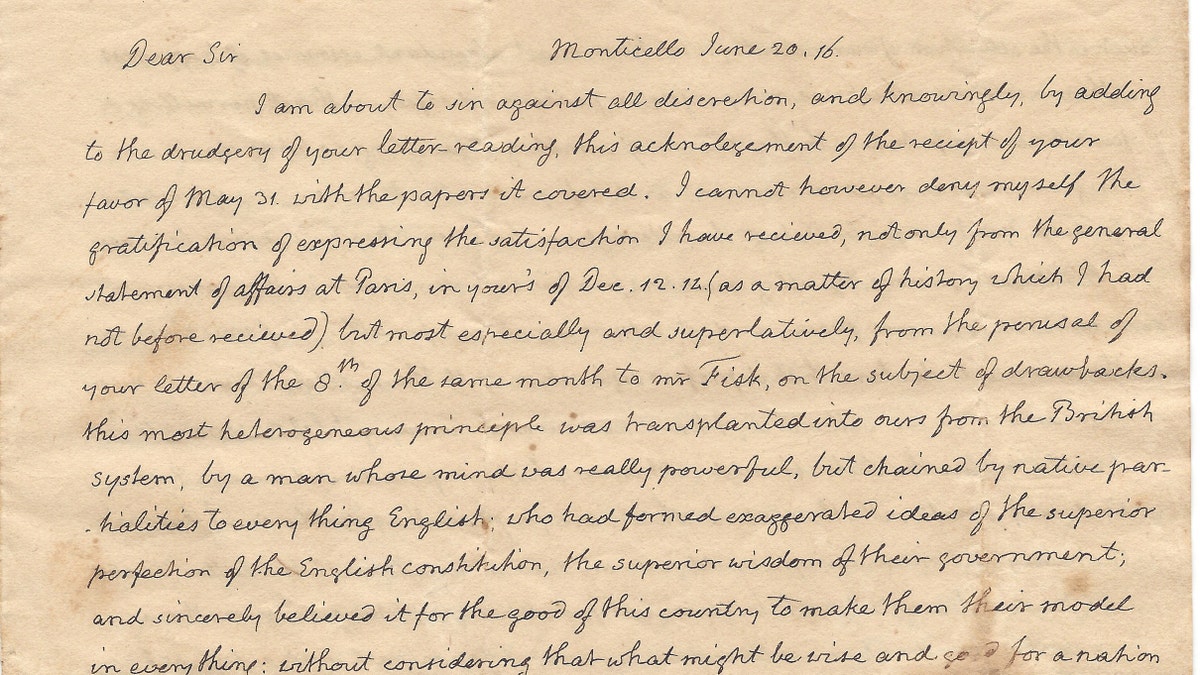 Dear Sir Monticello June 20. 16.
I am about to sin against all discretion, and knowingly, by adding
to the drudgery of your letter-reading, this acknolegement of the reciept of your
favor of May 31. with the papers it covered. I cannot however deny myself the
gratification of expressing the satisfaction I have recieved, not only from the general
statement of affairs at Paris, in your's of Dec. 12. 14. (as a matter of history which I had
not before recieved) but most especially and superlatively, from the perusal of
your letter of the 8.th of the same month to mr Fisk, on the subject of drawbacks.
this most heterogeneous principle was transplanted into ours from the British
system, by a man whose mind was really powerful, but chained by native par-
-tialities to every thing English: who had formed exaggerated ideas of the superior
perfection of the English constitution, the superior wisdom of their government;
and sincerely believed it for the good of this country to make them their model
in every thing: without considering that what might be wise and good for a nation